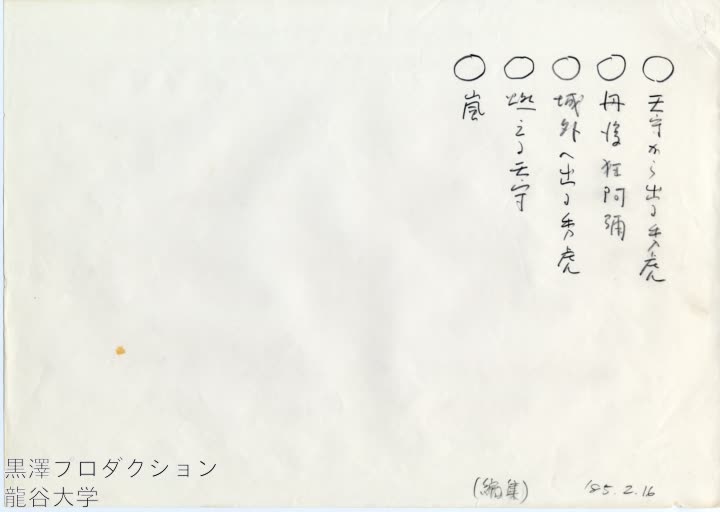 ○天守から出る秀虎
○丹後狂阿彌
○城外へ出る秀虎
○燃える天守
○嵐
(編集) '85.2.16
黒澤プロダクション
龍谷大学